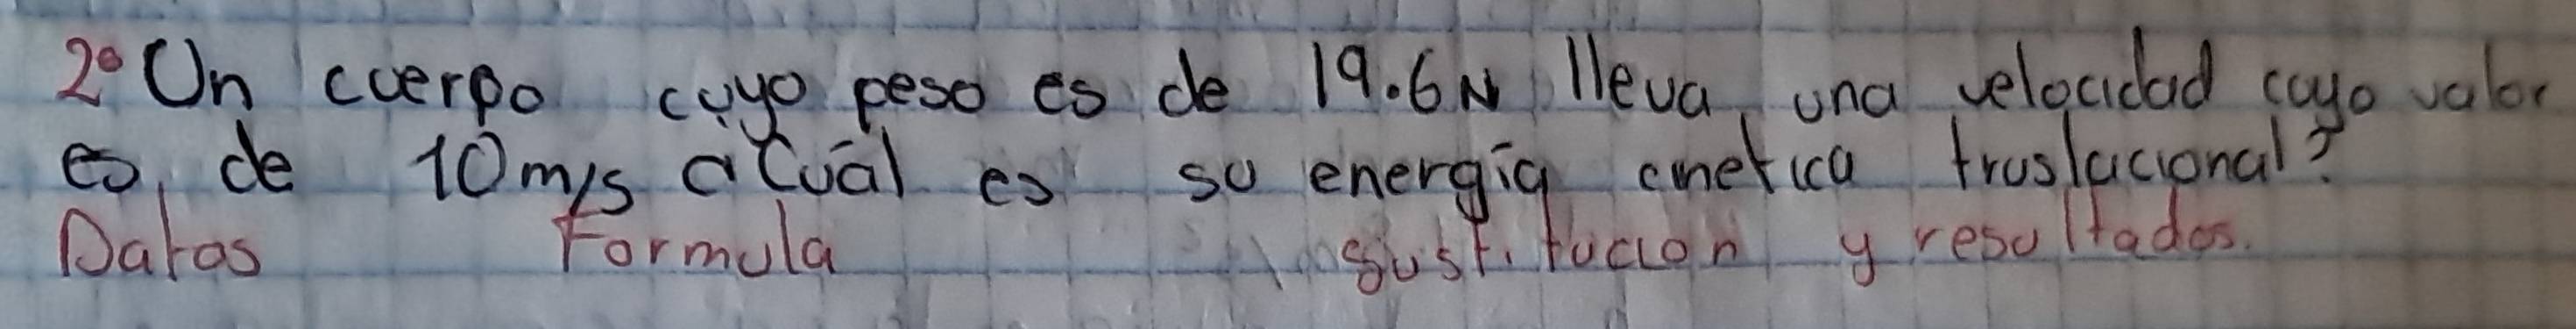 2° Un cuerpo cuyo peso es de 19.6N lleva una velocidad cuyo valor
es de 10m/s ¿Cuál es su energía cinetica traslacional?
Datos Formula Sustitucion y resultados.